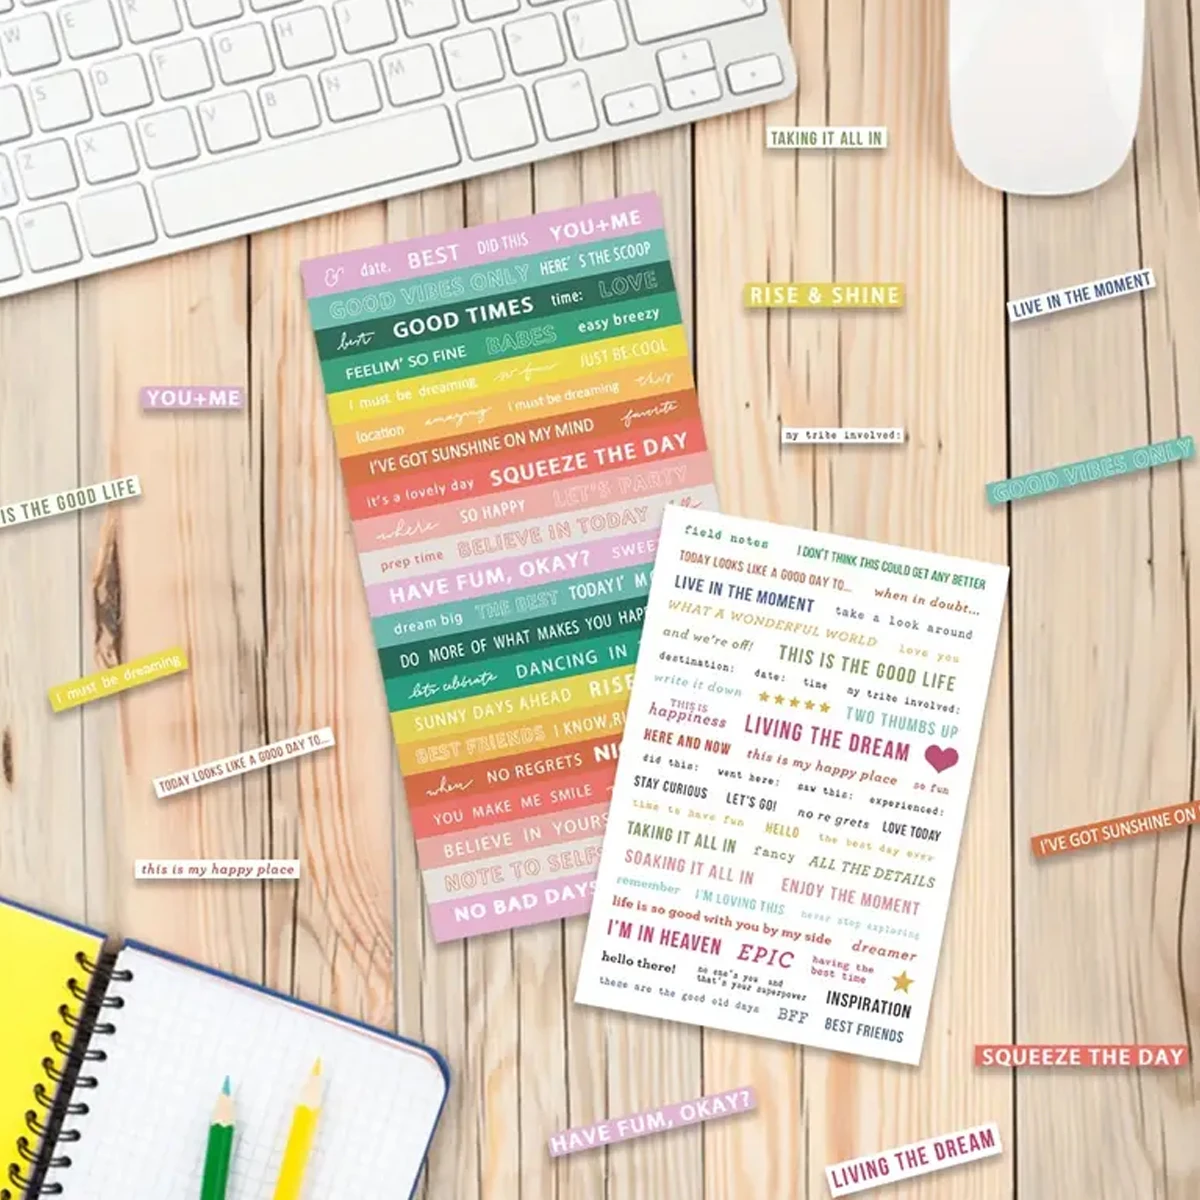 W E R
S D F G H J K L
Z X C V B N M
TAKING IT ALL IN
RISE & SHINE
LIVE IN THE MOMENT
YOU+ME
my tribe involved:
GOOD VIBES ONLY
IS THE GOOD LIFE
I must be dreaming
TODAY LOOKS LIKE A GOOD DAY TO...
this is my happy place
I'VE GOT SUNSHINE ON
SQUEEZE THE DAY
HAVE FUM, OKAY?
LIVING THE DREAM
& date. BEST DID THIS YOU+ME
GOOD VIBES ONLY HERE' S THE SCOOP
best GOOD TIMES time: LOVE
FEELIM' SO FINE BABES easy breezy
I must be dreaming so fun JUST BE COOL
location amazing I must be dreaming this
I'VE GOT SUNSHINE ON MY MIND favorite
it's a lovely day SQUEEZE THE DAY
where SO HAPPY LET'S PARTY
prep time BELIEVE IN TODAY
HAVE FUM, OKAY? SWEE
dream big THE BEST TODAY I' M
DO MORE OF WHAT MAKES YOU HAP
lets celebrate DANCING IN
SUNNY DAYS AHEAD RISE
BEST FRIENDS I KNOW,RI
when NO REGRETS NI
YOU MAKE ME SMILE
BELIEVE IN YOURS
NOTE TO SELF
NO BAD DAYS
field notes I DON'T THINK THIS COULD GET ANY BETTER
TODAY LOOKS LIKE A GOOD DAY TO... when in doubt...
LIVE IN THE MOMENT take a look around
WHAT A WONDERFUL WORLD love you
and we're off! THIS IS THE GOOD LIFE
destination: date: time my tribe involved:
write it down ★★★★★ TWO THUMBS UP
THIS IS happiness LIVING THE DREAM
HERE AND NOW this is my happy place so fun
did this: went here: saw this: experienced:
STAY CURIOUS LET'S GO! no re grets LOVE TODAY
time to have fun HELLO the best day ever
TAKING IT ALL IN fancy ALL THE DETAILS
SOAKING IT ALL IN ENJOY THE MOMENT
remember I'M LOVING THIS never stop exploring
life is so good with you by my side dreamer
I'M IN HEAVEN EPIC having the best time
hello there! no one's you and that's your superpower INSPIRATION
these are the good old days BFF BEST FRIENDS